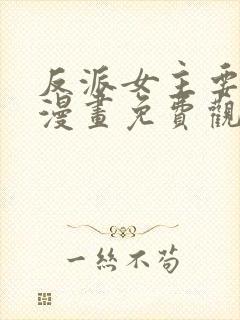 反派女主要
漫畫免費觀
一絲不苟